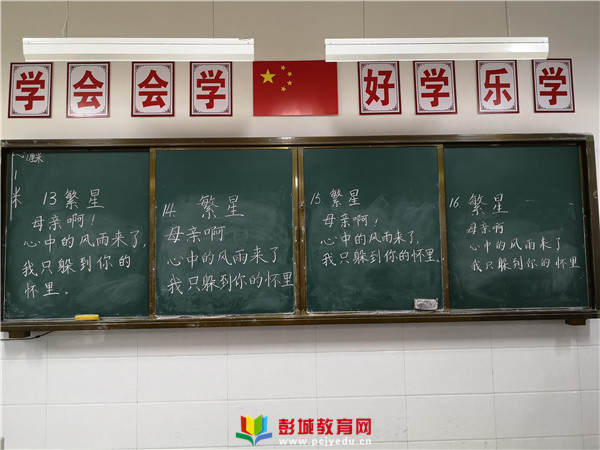 学会会学
好学乐学
1厘米
一米
13 繁星
母亲啊!
心中的风雨来了,
我只躲到你的
怀里.
14. 繁星
母亲啊
心中的风雨来了
我只躲到你的怀里
15 繁星
母亲啊!
心中的风雨来了,
我只躲到你的怀里.
16 繁星
母亲啊
心中的风雨来了
我只躲到你的怀里
彭城教育网
www.pcjyedu.cn